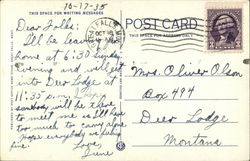 10-17-35
THIS SPACE FOR WRITING MESSAGES
POST CARD
THIS SPACE FOR ADDRESS ONLY
Dear Folks:
I'll be leaving
home at 6:30 Sunday
evening and will get
into Deer Lodge at
11:35 P.M.
somebody will be there
to meet me as I'll have
too much to carry.
Hope everybody is feeling
fine.
Love,
Irene
Mrs. Oliver Olson
Box 494
Deer Lodge
Montana